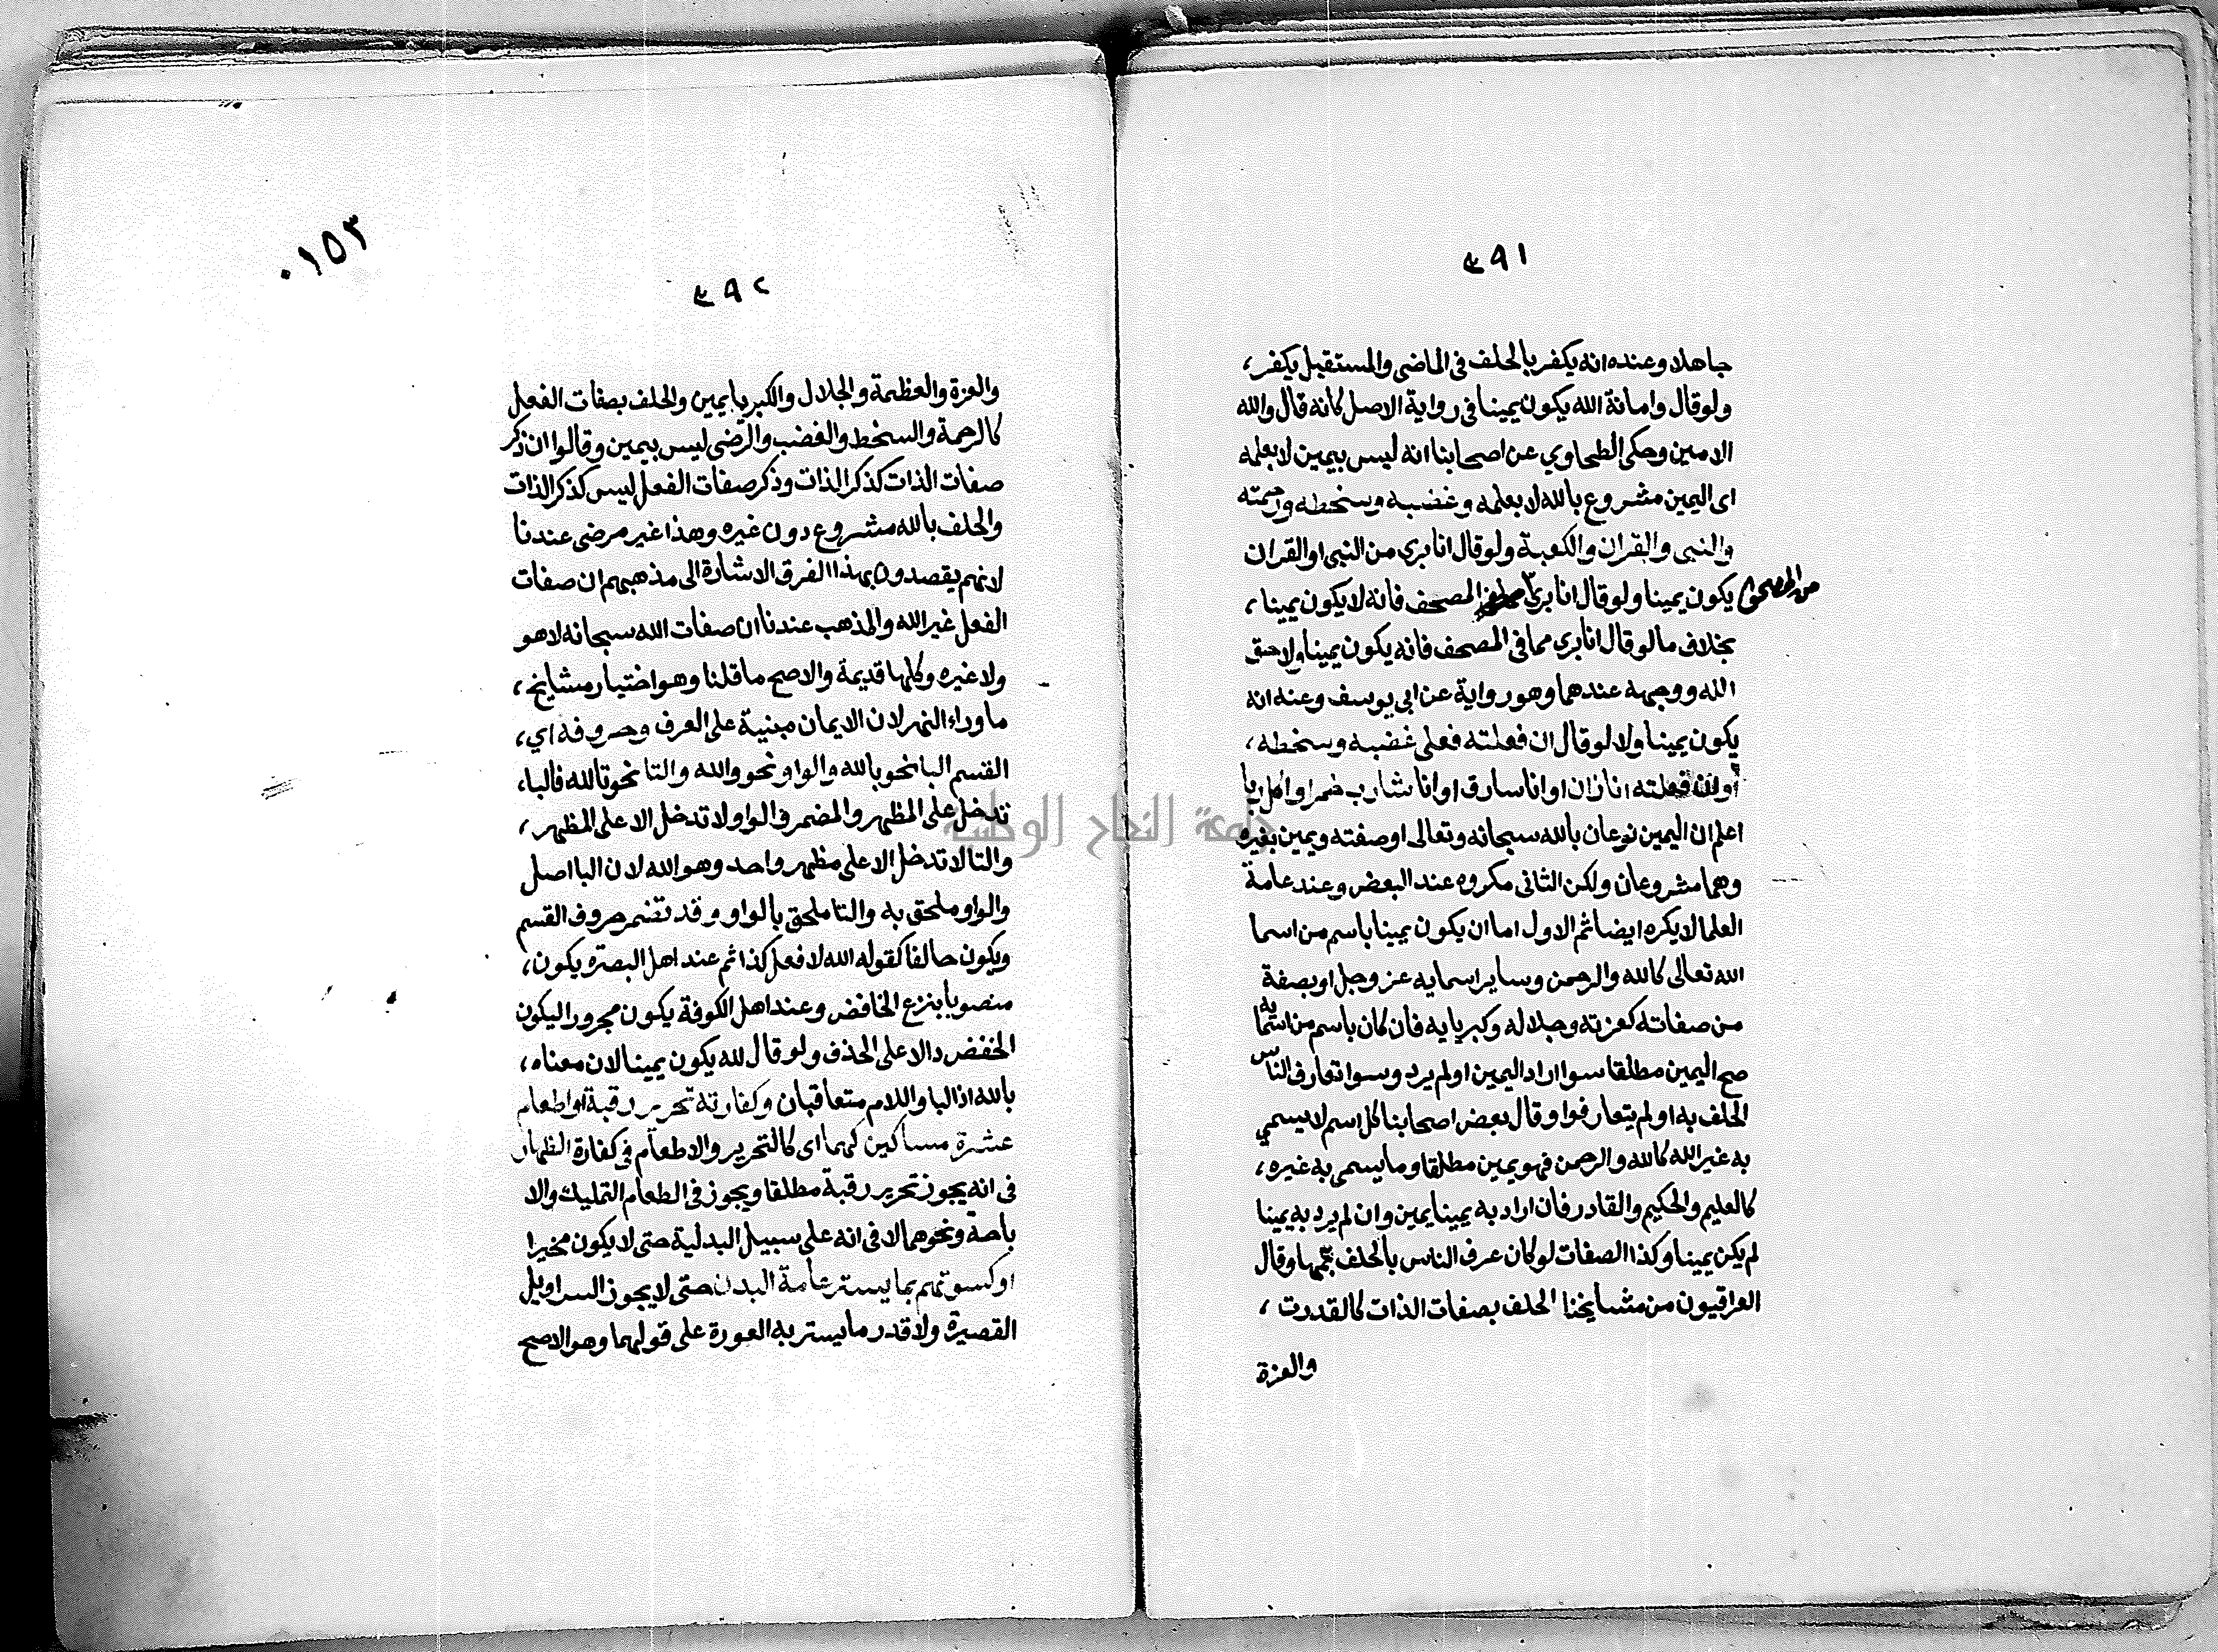 ٣٩١
جاهلا وعنده انه يكفر بالحلف فى الماضى والمستقبل يكفر،
ولو قال وامانة الله يكون يمينا فى رواية الاصل كانه قال والله
الامين وحكى الطحاوي عن اصحابنا انه ليس بيمين لا بعلمه
اى اليمين مشروع بالله لا بعلمه وغضبه وسخطه ورحمته
والنبى والقران والكعبة ولو قال انا برى من النبى او القران
يكون يمينا ولو قال انا برئ من المصحف فانه لا يكون يمينا،
من المصحف
بخلاف ما لو قال انا برى مما فى المصحف فانه يكون يمينا ولا حق
الله ووجهه عندهما وهو رواية عن ابى يوسف وعنه انه
يكون يمينا ولا لو قال ان فعلته فعلى غضبه وسخطه،
أو ان فعلته انا زان او انا سارق او انا شارب خمر او آكل ربا
اعلم ان اليمين نوعان بالله سبحانه وتعالى او صفته ويمين بغيره
وهما مشروعان ولكن الثانى مكروه عند البعض وعند عامة
العلما لا يكره ايضا ثم الاول اما ان يكون يمينا باسم من اسما
الله تعالى كالله والرحمن وساير اسمايه عز وجل او بصفة
من صفاته كعزته وجلاله وكبريايه فان كان باسم من اسمايه
صح اليمين مطلقا سوا اراد اليمين او لم يرد وسوا تعارف الناس
الحلف به او لم يتعارفوا وقال بعض اصحابنا كل اسم لا يسمي
به غير الله كالله والرحمن فهو يمين مطلقا وما يسمى به غيره،
كالعليم والحكيم والقادر فان اراد به يمينا يمين وان لم يرد به يمينا
لم يكن يمينا وكذا الصفات لو كان عرف الناس بالحلف بها وقال
العراقيون من مشايخنا الحلف بصفات الذات كالقدرت،
والعزة
٠١٥٣
٣٩٢
والعزة والعظمة والجلال والكبريا يمين والحلف بصفات الفعل
كالرحمة والسخط والغضب والرضى ليس بيمين وقالوا ان ذكر
صفات الذات كذكر الذات وذكر صفات الفعل ليس كذكر الذات
والحلف بالله مشروع دون غيره وهذا غير مرضى عندنا
لانهم يقصدون بهذا الفرق الاشارة الى مذهبهم ان صفات
الفعل غير الله والمذهب عندنا ان صفات الله سبحانه لا هو
ولا غيره وكلها قديمة والاصح ما قلنا وهو اختيار مشايخ،
ما وراء النهر لان الايمان مبنية على العرف وحروفه اي،
القسم البا نحو بالله والواو نحو والله والتا نحو تالله فالبا،
تدخل على المظهر والمضمر والواو لا تدخل الا على المظهر،
والتا لا تدخل الا على مظهر واحد وهو الله لان البا اصل
والواو ملحق به والتا ملحق بالواو وقد تضمر حروف القسم
ويكون حالفا كقوله الله لا فعل كذا ثم عند اهل البصرة يكون،
منصوبا بنزع الخافض وعند اهل الكوفة يكون مجرورا ليكون
الخفض دالا على الحذف ولو قال لله يكون يمينا لان معناه،
بالله اذ البا واللام متعاقبان وكفارته تحرير رقبة او اطعام
عشرة مساكين كهما اى كالتحرير والاطعام فى كفارة الظهار
فى انه يجوز تحرير رقبة مطلقا ويجوز فى الطعام التمليك والا
باحة ونحوهما لا فى انه على سبيل البدلية حتى لا يكون مخيرا
او كسوتهم بما يستر عامة البدن حتى لا يجوز السراويل
القصيرة ولا قدر ما يستر به العورة على قولهما وهو الاصح
جامعة النجاح الوطنية